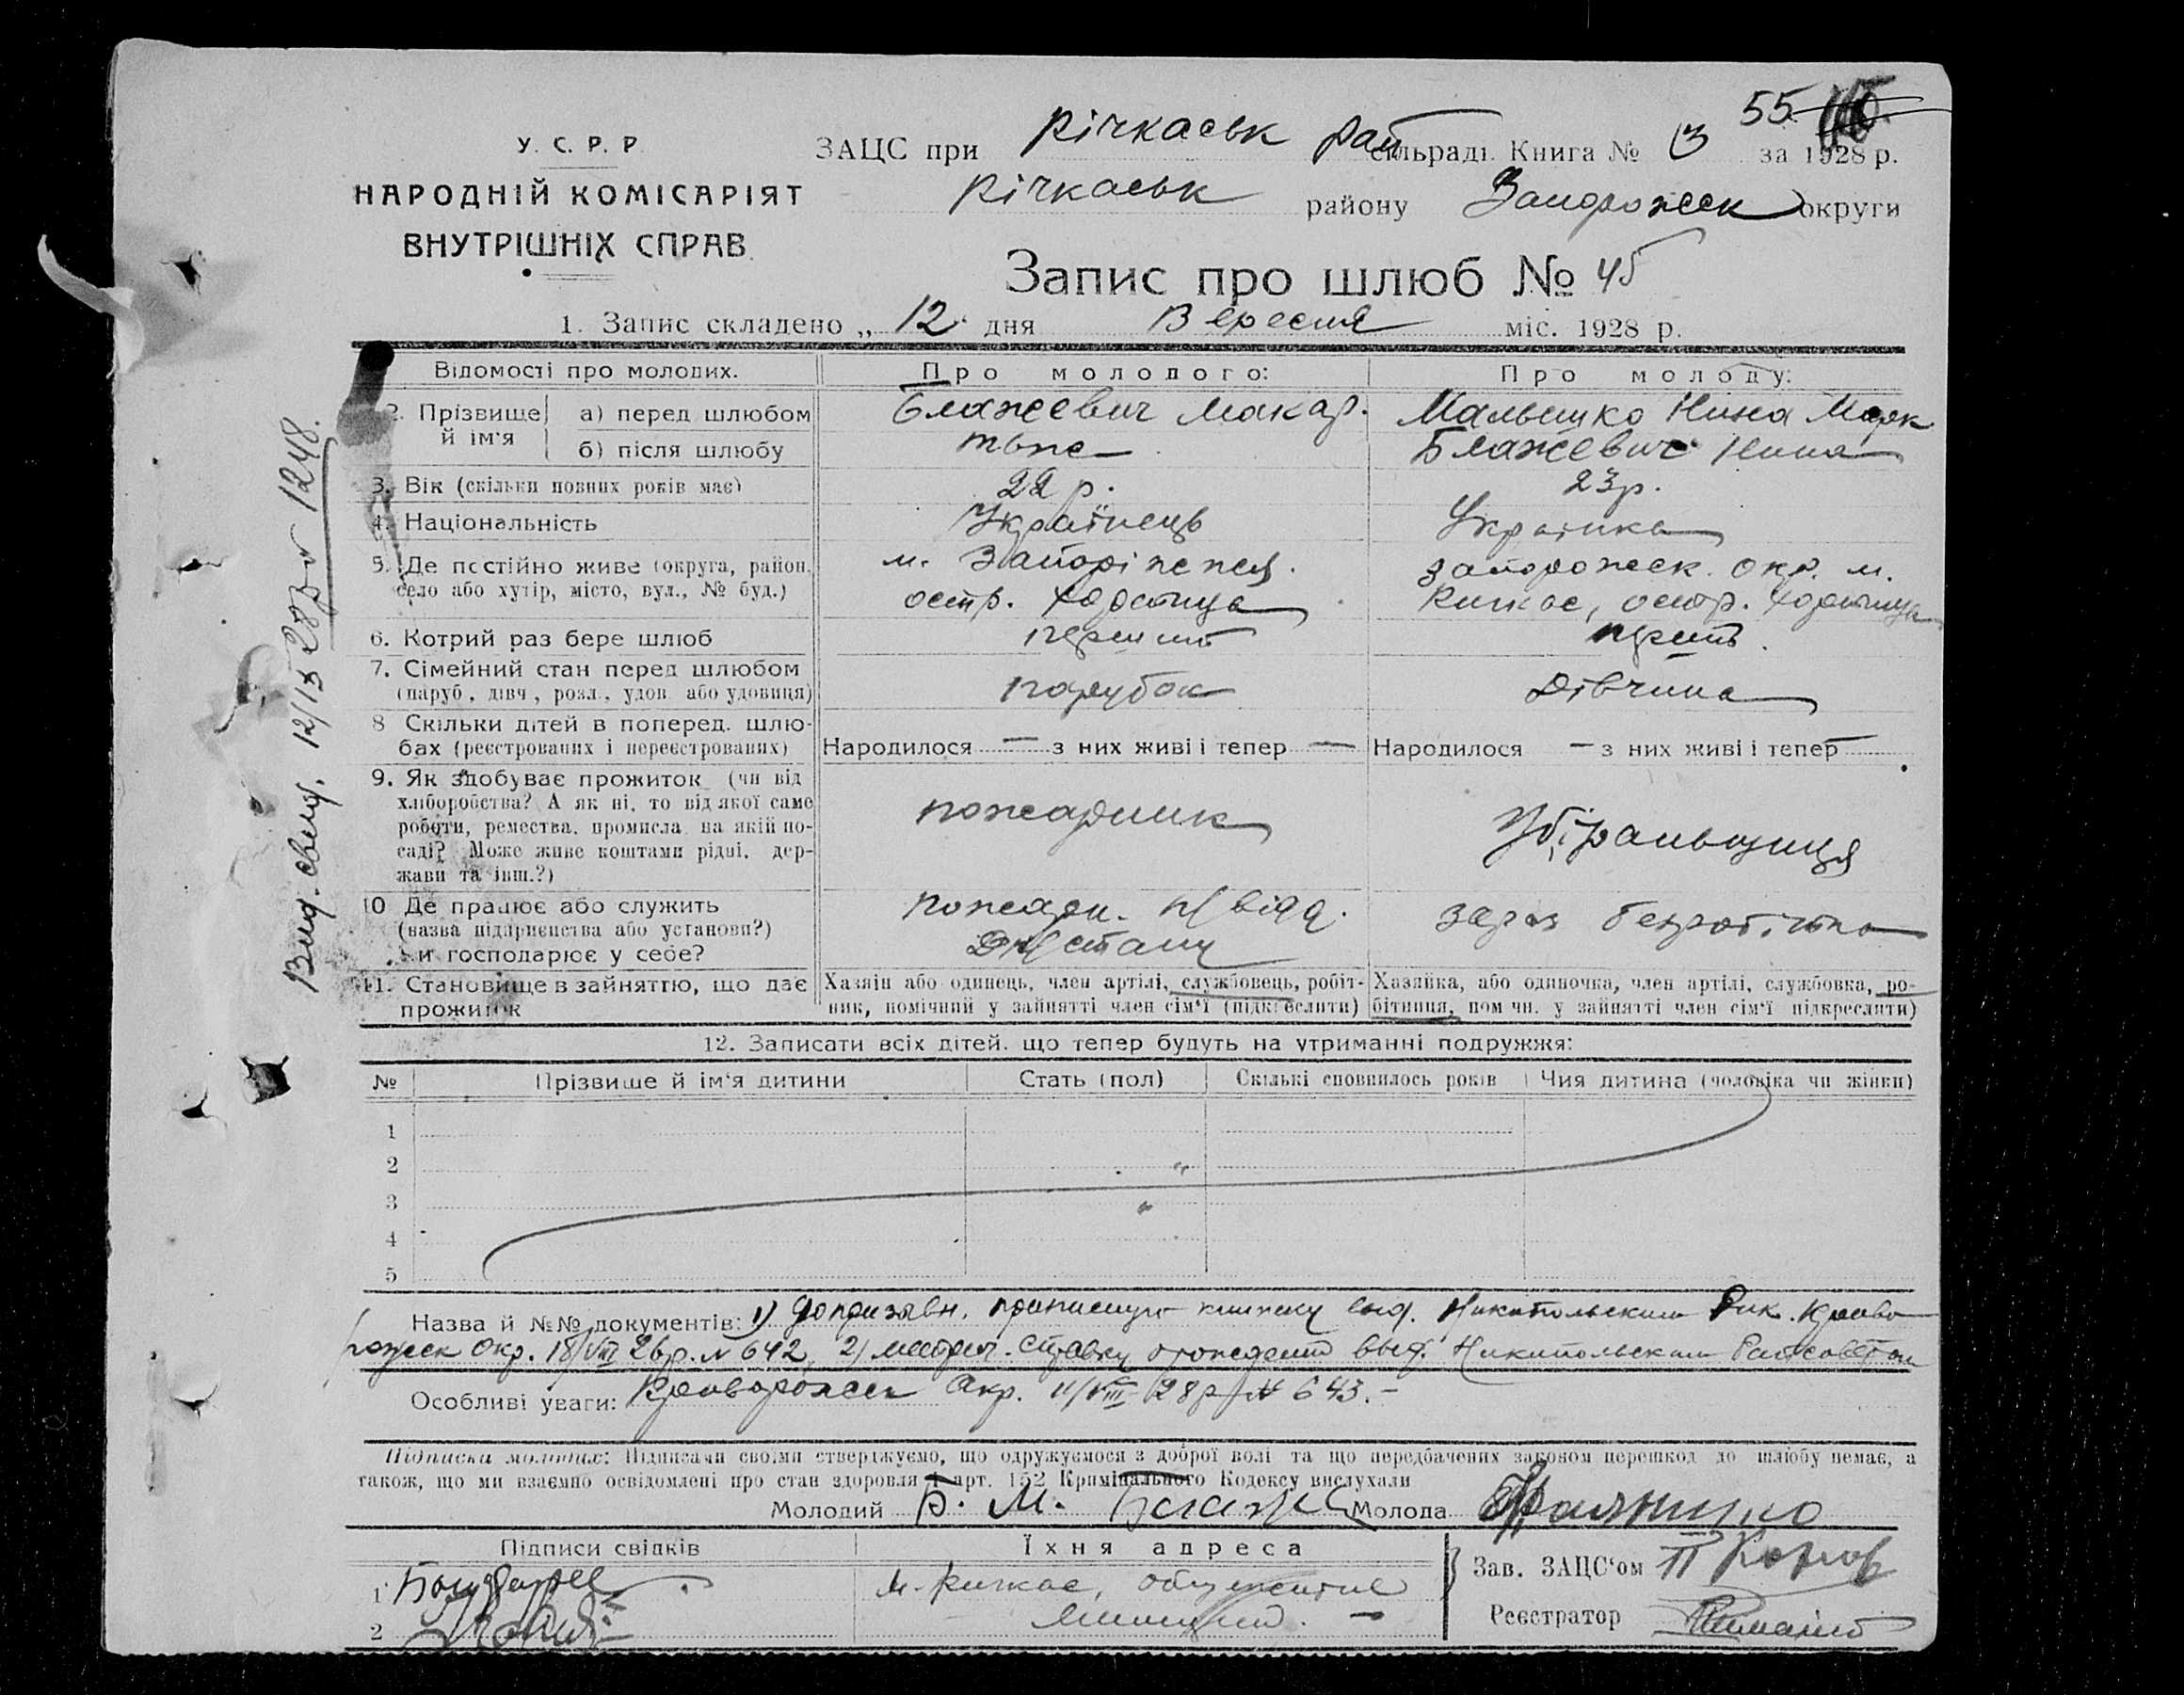 55
У. С. Р. Р.
НАРОДНІЙ КОМІСАРІЯТ
ВНУТРІШНІХ СПРАВ
ЗАЦС при Річкаськ рай сільраді. Книга № 13 за 1928 р.
Річкаськ району Запорожск округи
Запис про шлюб № 45
1. Запис складено „ 12 дня Вересня міс. 1928 р.
Відомості про молодих. Про молодого: Про молоду:
2. Прізвище й ім'я а) перед шлюбом Блажевич Макар. Малышко Нина Марк
б) після шлюбу тьже Блажевич Нина
3. Вік (скільки повних років має) 22 р. 23р.
4. Національність Українець Українка
5. Де постійно живе (округа, район, м. Запоріжжя. запорожск. окр. м.
село або хутір, місто, вул., № буд.) остр. Хортица Кичкас, остр. Хортица
6. Котрий раз бере шлюб перший перший
7. Сімейний стан перед шлюбом
(паруб., дівч., розл., удов. або удовиця) парубок Дівчина
8 Скільки дітей в поперед. шлю-
бах (реєстрованих і нереєстрованих) Народилося — з них живі і тепер — Народилося — з них живі і тепер —
9. Як здобуває прожиток (чи від
хліборобства? А як ні, то від якої саме
роботи, ремества, промисла, на якій по- пожарник Убіральщиця
саді? Може живе коштами рідні, дер-
жави та інш.?)
10 Де працює або служить пожарн. відд. зараз безробітна
(назва підприємства або установи?)
чи господарює у себе?
11. Становище в зайняттю, що дає Хазяїн або одинець, член артілі, службовець, робіт- Хазяйка, або одиночка, член артілі, службовка, ро-
прожиток ник, помічний у зайнятті член сім'ї (підкреслити) бітниця, помічн. у зайнятті член сім'ї підкреслити)
12. Записати всіх дітей, що тепер будуть на утриманні подружжя:
№ Прізвище й ім'я дитини Стать (пол) Скількі сповнилось років Чия дитина (чоловіка чи жінки)
1
2
3
4
5
Назва й №№ документів: 1) допризывн. приписную книжку выд. Никопольским Рик. Криво
рожск окр. 18/VIII 26р. № 642, 2) справку о рождении выд. Никопольским Райсоветом
Особливі уваги: Криворожск окр. 11/VIII 28р № 643. –
Підписки молодих: Підписами своїми стверджуємо, що одружуємося з доброї волі та що передбачених законом перешкод до шлюбу немає, а
також, що ми взаємно освідомлені про стан здоровля й арт. 152 Кримінального Кодексу вислухали
Молодий Молода
Підписи свідків Їхня адреса
1 м. Кичкас, общежитие Зав. ЗАЦС'ом
2 милиции. – Реєстратор